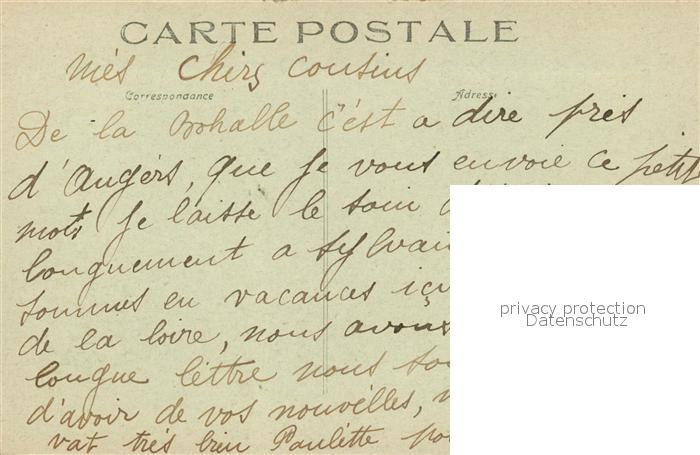 CARTE POSTALE
més chers cousins
Correspondance
Adresse
De la Bohalle c'ést a dire prés
d'Angérs, que je vous envoie ce petit
mots je laisse le soin
longuement a Sylvain
sommes en vacances içi
de la loire, nous avons
longue léttre nous
d'avoir de vos nouvélles,
vat trés bien Paulétte
privacy protection
Datenschutz